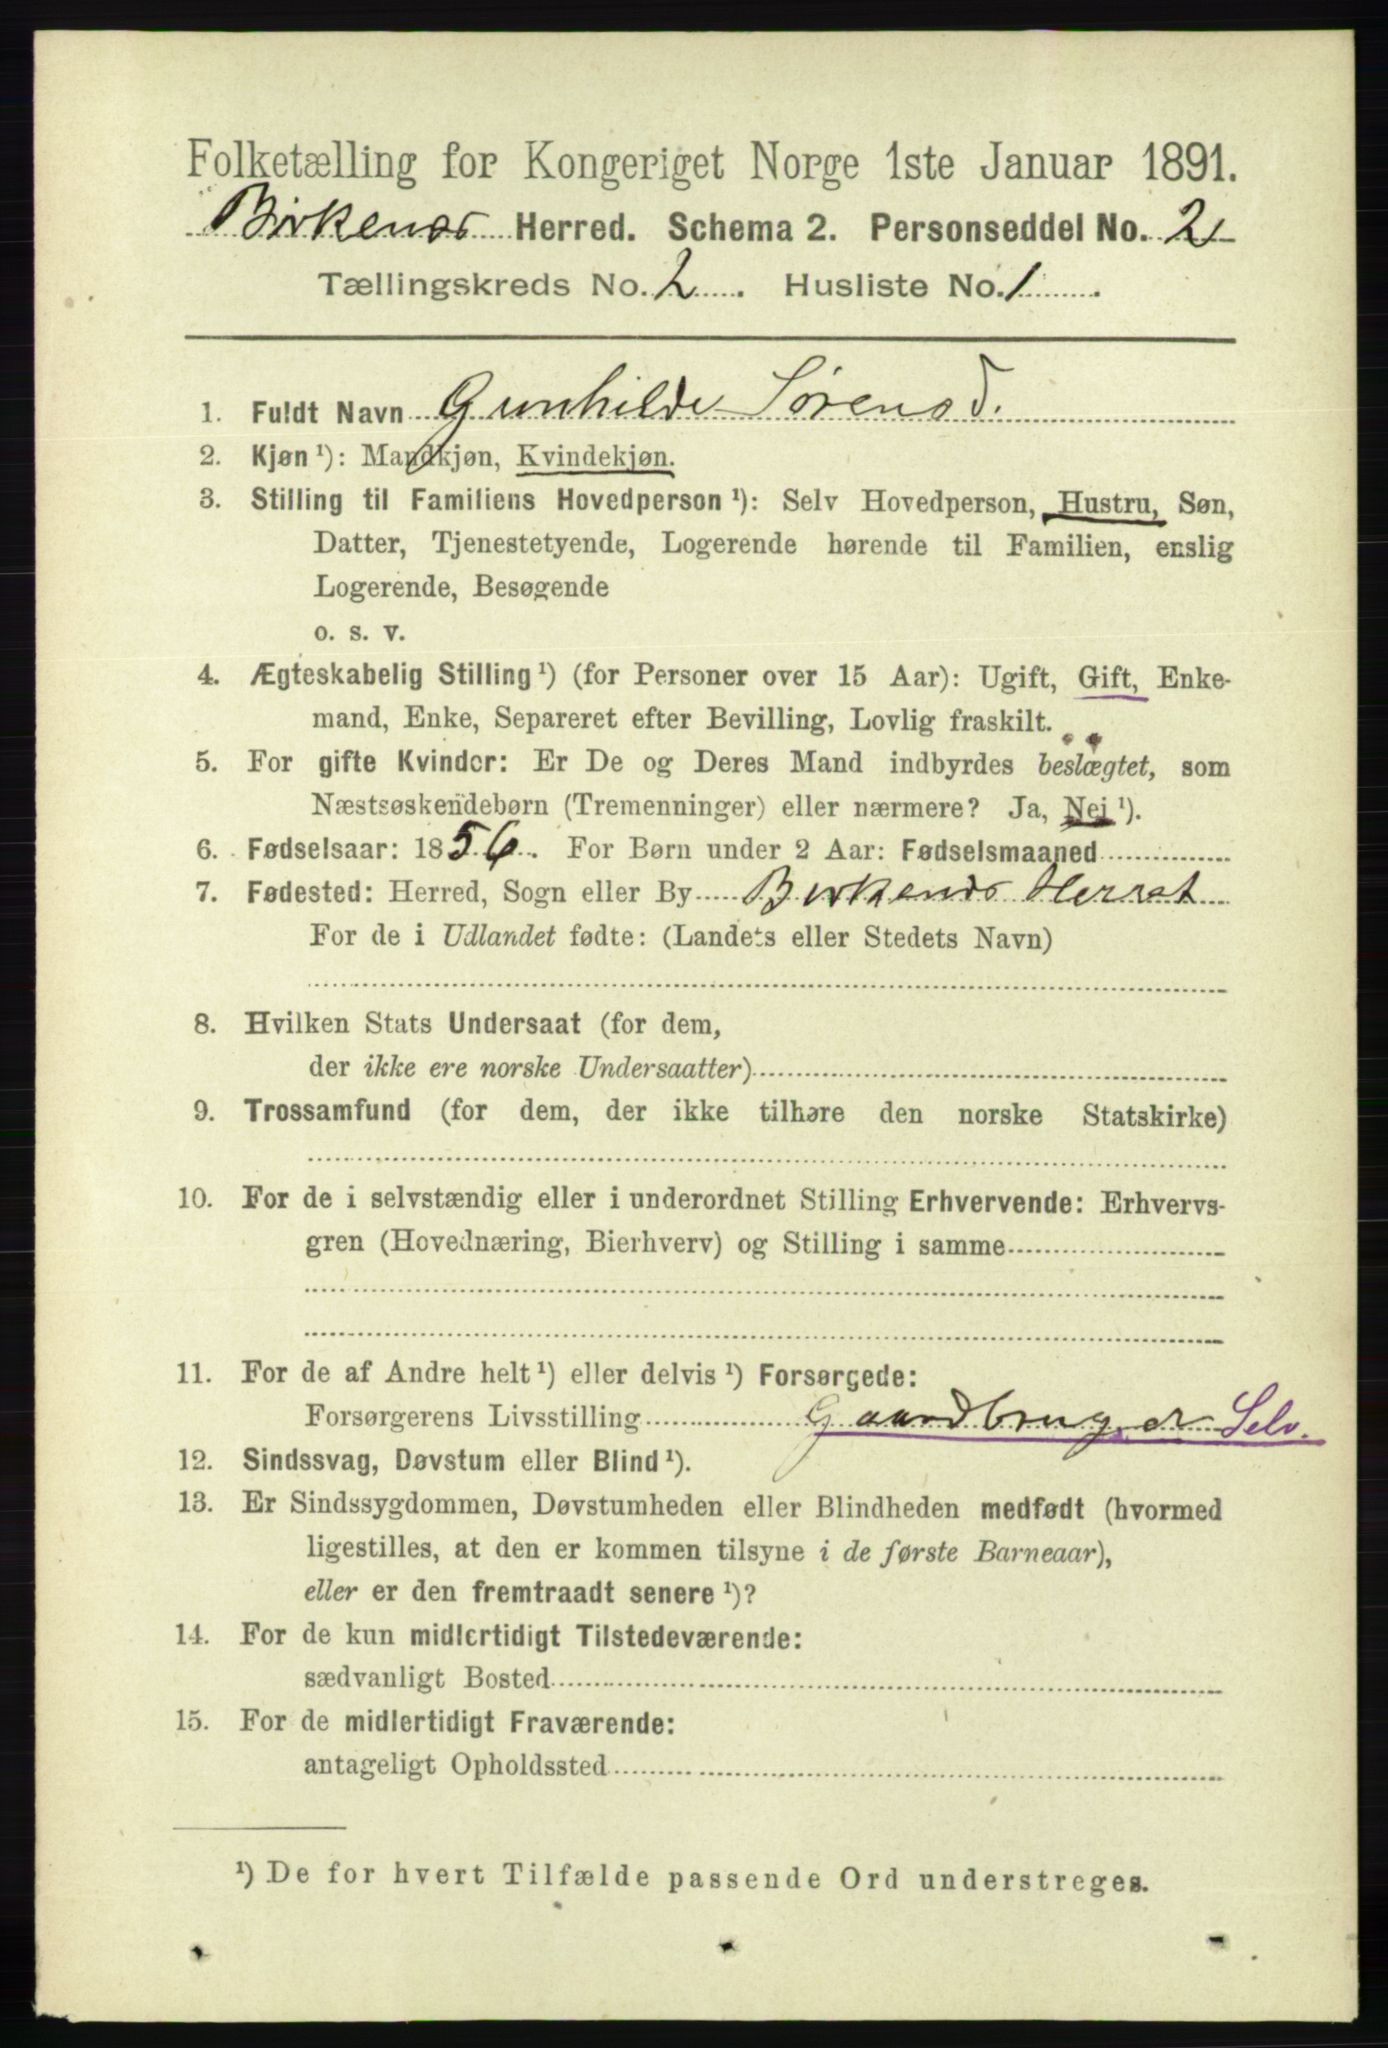 Folketælling for Kongeriget Norge 1ste Januar 1891.
Birkenæs Herred. Schema 2. Personseddel No. 2
Tællingskreds No. 2. Husliste No. 1.
1. Fuldt Navn Gunhilde Sørensd.
2. Kjøn ¹): Mandkjøn, Kvindekjøn.
3. Stilling til Familiens Hovedperson ¹): Selv Hovedperson, Hustru, Søn,
Datter, Tjenestetyende, Logerende hørende til Familien, enslig
Logerende, Besøgende
o. s. v.
4. Ægteskabelig Stilling ¹) (for Personer over 15 Aar): Ugift, Gift, Enke-
mand, Enke, Separeret efter Bevilling, Lovlig fraskilt.
5. For gifte Kvinder: Er De og Deres Mand indbyrdes beslægtet, som
Næstsøskendebørn (Tremenninger) eller nærmere? Ja, Nei ¹).
6. Fødselsaar: 1856. For Børn under 2 Aar: Fødselsmaaned
7. Fødested: Herred, Sogn eller By Birkenæs Herret
For de i Udlandet fødte: (Landets eller Stedets Navn)
8. Hvilken Stats Undersaat (for dem,
der ikke ere norske Undersaatter)
9. Trossamfund (for dem, der ikke tilhøre den norske Statskirke)
10. For de i selvstændig eller i underordnet Stilling Erhvervende: Erhvervs-
gren (Hovednæring, Bierhverv) og Stilling i samme
11. For de af Andre helt ¹) eller delvis ¹) Forsørgede:
Forsørgerens Livsstilling Gaardbruger Selv.
12. Sindssvag, Døvstum eller Blind ¹).
13. Er Sindssygdommen, Døvstumheden eller Blindheden medfødt (hvormed
ligestilles, at den er kommen tilsyne i de første Barneaar),
eller er den fremtraadt senere ¹)?
14. For de kun midlertidigt Tilstedeværende:
sædvanligt Bosted
15. For de midlertidigt Fraværende:
antageligt Opholdssted
¹) De for hvert Tilfælde passende Ord understreges.